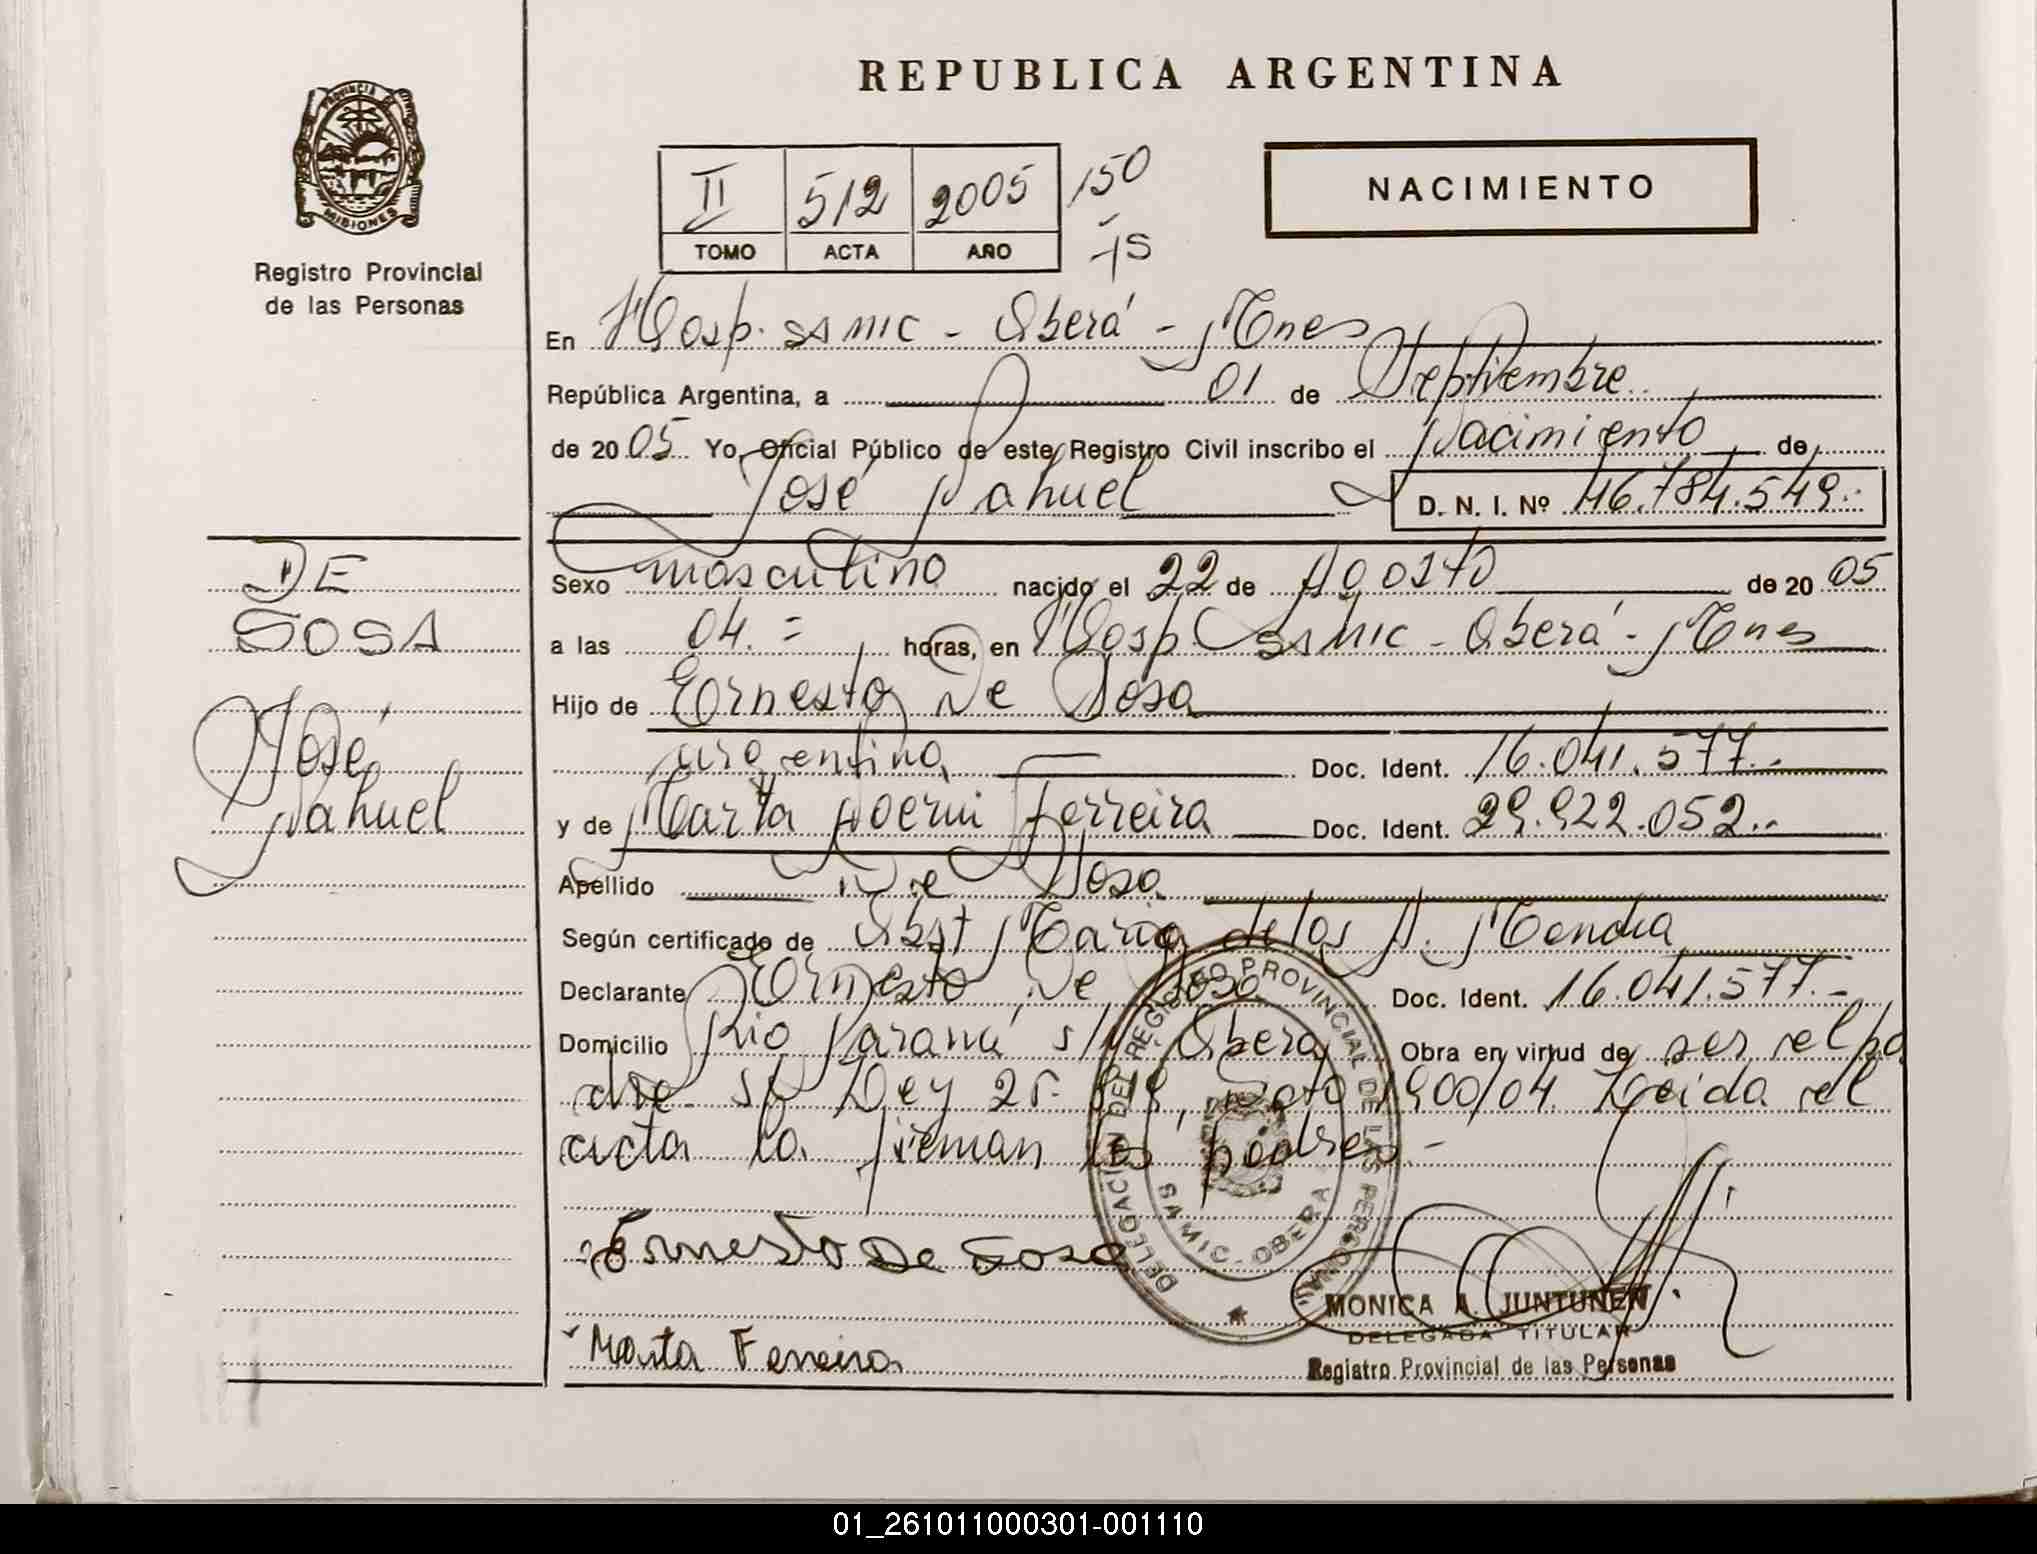 REPUBLICA ARGENTINA
PROVINCIA DE
MISIONES
Registro Provincial
de las Personas
II 512 2005 150
TOMO ACTA AÑO
NACIMIENTO
En Hosp. SAMIC - Oberá - Mnes
República Argentina, a 01 de Septiembre
de 2005 Yo, Oficial Público de este Registro Civil inscribo el Nacimiento de
José Nahuel D. N. I. Nº 46.784.549.-
DE
SOSA
José
Nahuel
Sexo masculino nacido el 22 de Agosto de 2005
a las 04.= horas, en Hosp SAMIC - Oberá - Mnes
Hijo de Ernesto De Sosa
argentina Doc. Ident. 16.041.577.-
y de Marta Noemi Ferreira Doc. Ident. 29.922.052.-
Apellido De Sosa
Según certificado de Obst María de los A. Mendra
Declarante Ernesto De Sosa Doc. Ident. 16.041.577.-
Domicilio Río Paraná s/n Oberá Obra en virtud de ser el pa
dre s/ Ley 25.819, Dto 1900/04. Leida el
acta la firman los padres.-
Ernesto De Sosa
Marta Ferreira
DELEGACION DEL REGISTRO PROVINCIAL DE LAS PERSONAS
SAMIC - OBERA
MONICA A. JUNTUNEN
DELEGADA TITULAR
Registro Provincial de las Personas
01_261011000301-001110